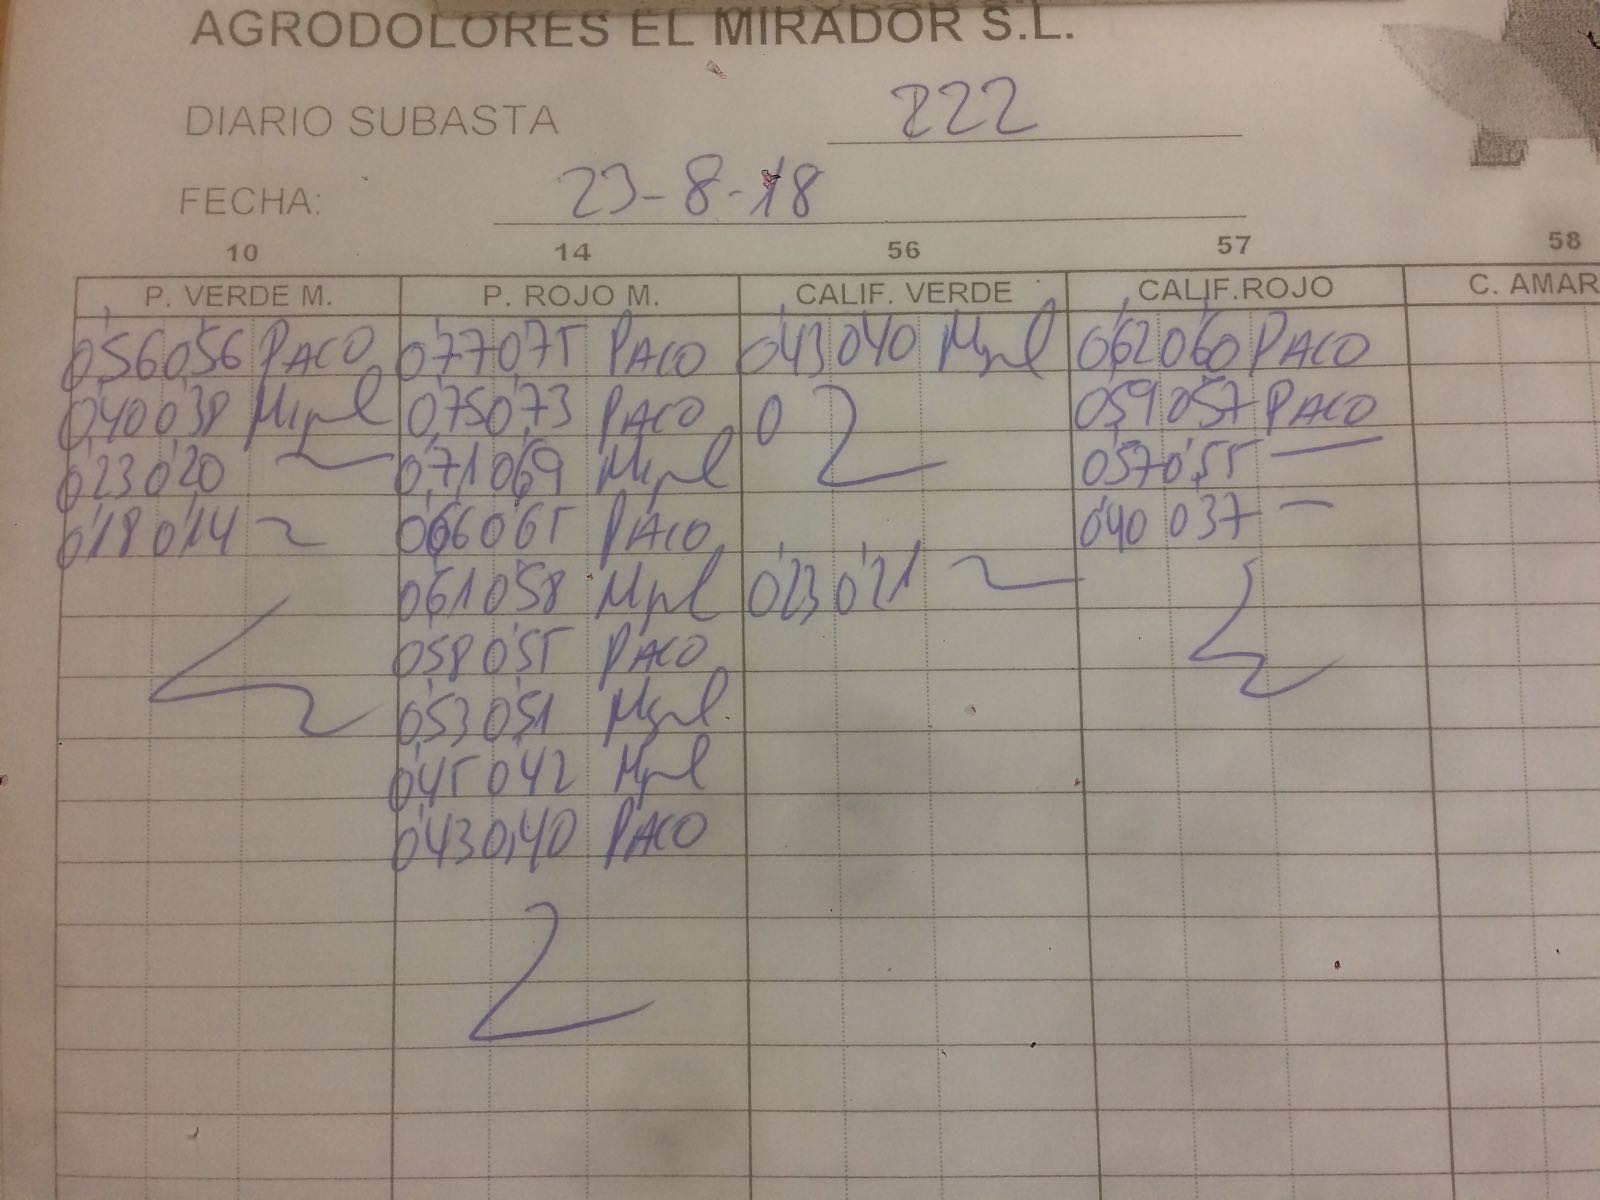 AGRODOLORES EL MIRADOR S.L.
DIARIO SUBASTA 222
FECHA: 23-8-18
10 14 56 57 58
P. VERDE M. P. ROJO M. CALIF. VERDE CALIF.ROJO C. AMAR
0'56 0'56 PACO 0'77 0'75 PACO 0'43 0'40 Mgul 0'62 0'60 PACO
0'40 0'38 Migul 0'75 0'73 PACO 0 0'59 0'57 PACO
0'23 0'20 0'71 0'69 Migul 0'57 0'55 —
0'18 0'14 0'66 0'65 PACO 0'40 0'37 —
0'61 0'58 Mgul 0'23 0'21
0'58 0'55 PACO
0'53 0'51 Mgul
0'45 0'42 Mgul
0'43 0'40 PACO